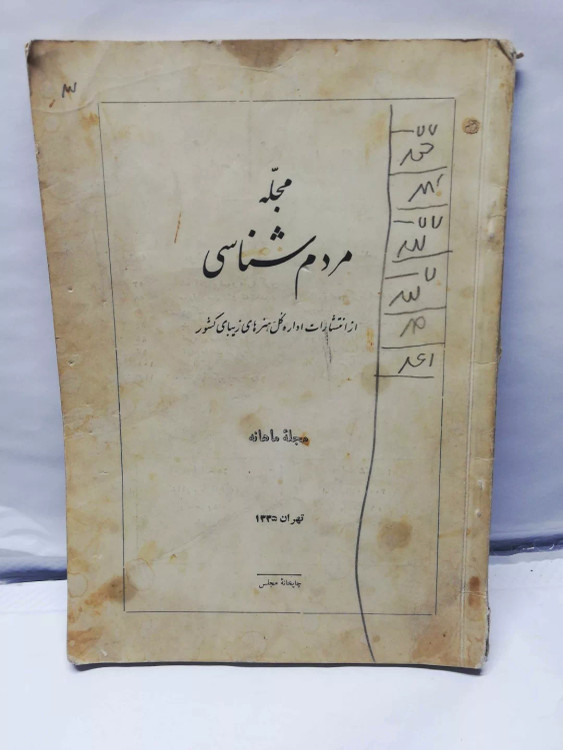 مجلّه
مردم شناسی
از انتشارات اداره کل هنرهای زیبای کشور
مجلهٔ ماهانه
تهران ۱۳۳۵
چاپخانهٔ مجلس